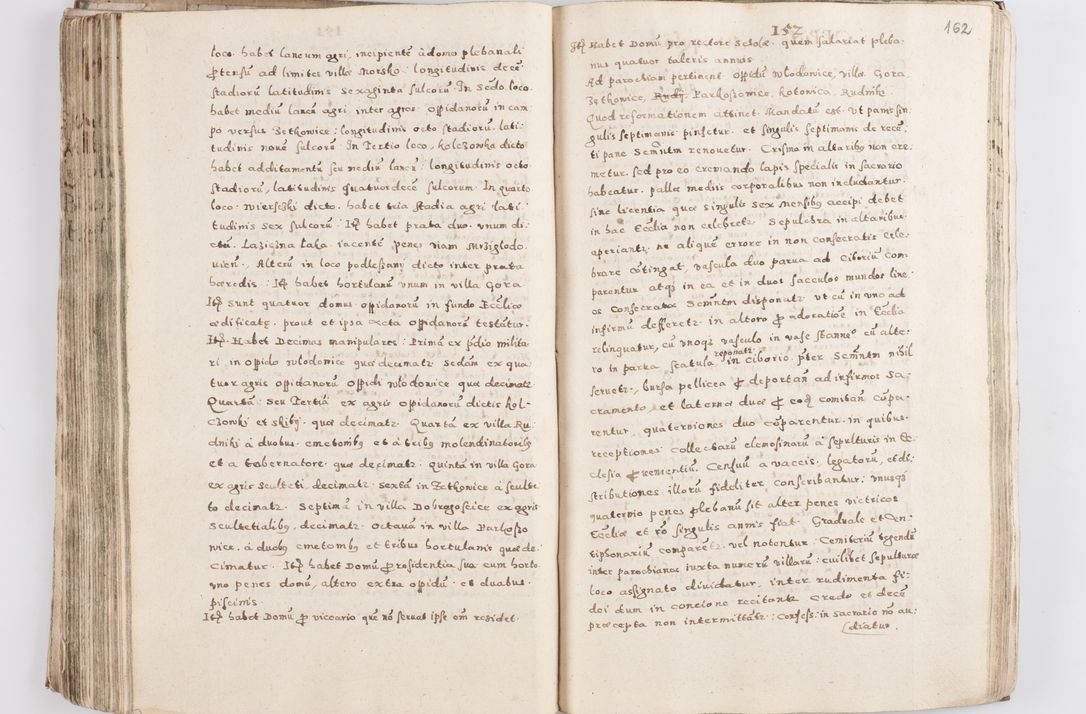 loco habet laneum agri, incipientē à domo plebanali
ꝓtensū ad limites villæ Morsko: longitudinis decē
stadiorū latitudinis sexaginta sulcorū. In Sedo loco
habet mediū lanei agri inter agros oppidanorū in cam
po versus Zetkowice: longitudinis octo stadiorū, lati:
tudinis nouē sulcorū. In Tertio loco, Kolczonka dicto
habet additamentū seu mediū lanei: longitudinis octo
stadiorū, latitudinis quatuordecē sulcorum. In quarto
loco: Wierschi dicto, habet tria stadia agri lati:
tudinis sex sulcorū. Itē habet prata duo. vnum di:
ctū. Laziczna Łaka iacentē penes viam Mrziglodo
uien, Alterū in loco podleszany dicto inter prata
hæredis. Itē habet hortulanū vnum in villa Gora
Itē Sunt quatuor domus oppidanorū in fundo Eccliæ
ædificatę, prout et ipsa acta oppidanorū testātur.
Itē. Habet Decimas manipulares: Primā ex pdio milita
ri in opido Wlodowice quæ decimatz. Sedam ex qua
tuor agris oppidanorū Oppidi Wlodowice quæ decimatz
Quartā: seu Tertiā ex agris oppidanorū dictis Kol-
czonki et skiby. quæ decimatz. Quartā ex villa Ru
dniki à duobus cmetonibꝫ et à tribꝫ molendinatoribꝫ
et a tabernatore quæ decimatz. Quintā in villa Gora
ex agris sculteti, decimatz. sextā in Zetkowice à sculte
to decimatz. Septimā in villa Dobrogoscice ex agris
scultetialibꝫ, decimatz. Octauā in villa Parkoszo
wice. à duobꝫ cmetonibꝫ et tribus hortulanis quæ de:
cimatur. Itē habet Domū ꝓ residentia sua cum horto
vno penes domū, altero extra oppidū. et duabus
piscinis.
Itē habet Domū ꝓ viccario que nō seruat ipse em residet.
152
162
Itē Habet Domū pro rectore Scholæ. quem salariat pleba:
nus quatuor taleris annuis
Ad parochiam pertinent Oppidū Wlodowice, villæ Gora,
Zetkowice, Rudy, Parkoszowice, Hotowica, Rudniki.
Quod reformationem attinet. Mandatū est. Vt panis sin
gulis septimanis pinsetur. et singulis septimanis de recē:
ti pane Semntm renouetur. Crisma in altaribꝫ non cre:
metur. sed pro eo cremando lapis specialis in sacrario
habeatur. pallæ mediis corporalibus non includantur.
sine licentia quæ singulis sex mensibꝫ accipi debet
in hac Ecclia non celebretz. Sepulchra in altaribus
aperiantz. ne aliquē errore in non consecratis cele-
brare cōtingat, vascula duo parua ad Ciboriū com:
parentur atqꝫ in ea et in duos sacculos mundos line:
os Consecratæ Semntm disponatz vt cū in vno ad
infirmū defferetz in altero ꝓ adoratiōe in Ecclia
relinquatur, cū vnoqꝫ vasculo in vase stanneo cū alte:
ro in parua scatula in Ciborio reponatz pter Semntm nihil
seruetz, bursa pellicea ꝓ deportan ad infirmos Sa:
cramento, et laternæ duæ ꝓ eoqꝫ comitan cōpa:
rentur. quaterniones duo cōparentur. in quibus
receptiones collectarū elemosinarū a sepulturis in Ec
clesia ꝓuenientiū. Censuū a vaccis. legatorū, et di:
stributiones illorū fideliter conscribantur: vnusqꝫ
quaternio penes plebanū sit alter penes victricos
Eccliæ et rō singulis annis fiat. Graduale et An:
tiphonariū comparetz. vel notentur. Cemiteriū
inter parochianos iuxta numerū villarū: cuilibet sepulturæ
loco assignato diuidatur, inter rudimenta fi:
dei dum in concione recitantz Credo et decē
præcepta non intermittātz: Confess: in sacrario nō au:
diatur.